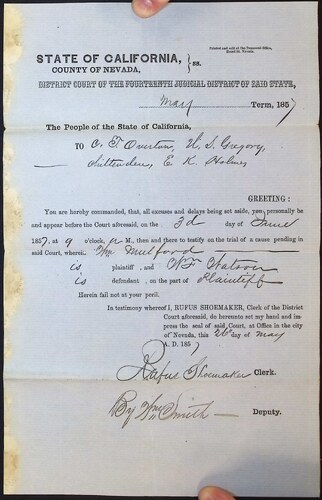 STATE OF CALIFORNIA, } ss.
COUNTY OF NEVADA,
DISTRICT COURT OF THE FOURTEENTH JUDICIAL DISTRICT OF SAID STATE,
May Term, 1857
The People of the State of California,
TO C. T. Overton, H. S. Gregory,
E. K. Holmes
GREETING:
You are hereby commanded, that, all excuses and delays being set aside, you personally be
and appear before the Court aforesaid, on the 3d day of June
1857, at 9 o'clock, A M., then and there to testify on the trial of a cause pending in
said Court, wherein Wm
is plaintiff, and Wm Watson
is defendant, on the part of Plaintiff
Herein fail not at your peril.
In testimony whereof I, RUFUS SHOEMAKER, Clerk of the District
Court aforesaid, do hereunto set my hand and impress
the seal of said Court, at Office in the city
of Nevada, this 26 day of May
A. D. 1857
Rufus Shoemaker Clerk.
By Wm Smith Deputy.